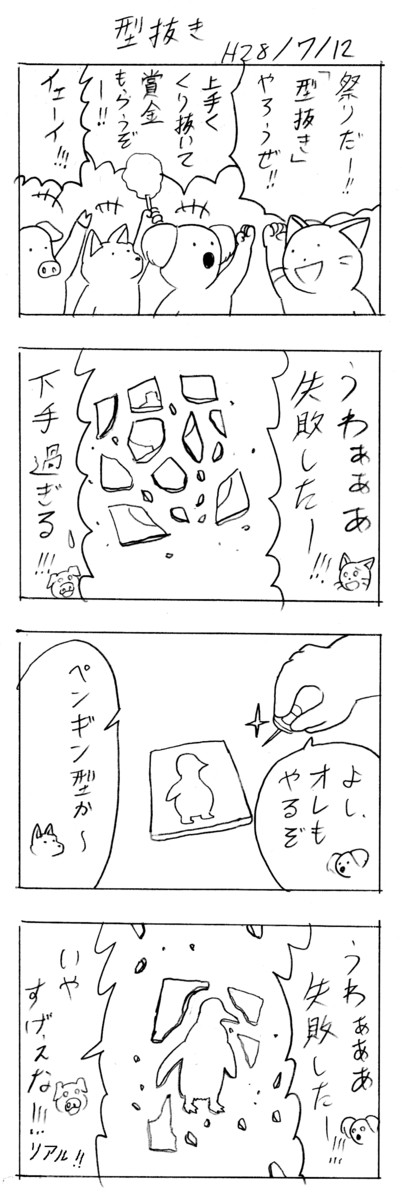 型抜き
H28/7/12
祭りだー!!
「型抜き」
やろうぜ!!
上手く
くり抜いて
賞金
もらうぞ
ー!!
イェーイ!!!
うわぁぁぁ
失敗したー!!!
下手過ぎる!!!
よし、
オレも
やるぞ
ペンギン型か〜
うわぁぁぁ
失敗したー!!!
いや
すげぇな!!!…
リアル!!